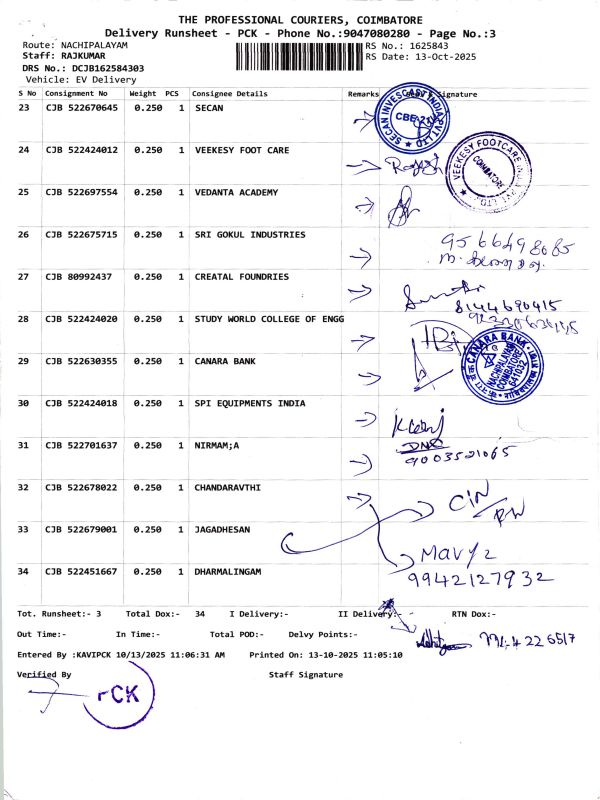 THE PROFESSIONAL COURIERS, COIMBATORE
Delivery Runsheet - PCK - Phone No.:9047080280 - Page No.:3
Route: NACHIPALAYAM
RS No.: 1625843
Staff: RAJKUMAR
RS Date: 13-Oct-2025
DRS No.: DCJB162584303
Vehicle: EV Delivery
S No Consignment No Weight PCS Consignee Details Remarks Signature
23 CJB 522670645 0.250 1 SECAN
SECAN INVESCAST INDIA PVT LTD
CBE-21
24 CJB 522424012 0.250 1 VEEKESY FOOT CARE
VEEKESY FOOTCARE
COIMBATORE
25 CJB 522697554 0.250 1 VEDANTA ACADEMY
26 CJB 522675715 0.250 1 SRI GOKUL INDUSTRIES
27 CJB 80992437 0.250 1 CREATAL FOUNDRIES
8144690415
28 CJB 522424020 0.250 1 STUDY WORLD COLLEGE OF ENGG
29 CJB 522630355 0.250 1 CANARA BANK
CANARA BANK
NACHIPALAYAM
COIMBATORE
641032
30 CJB 522424018 0.250 1 SPI EQUIPMENTS INDIA
31 CJB 522701637 0.250 1 NIRMAM;A
9003521065
32 CJB 522678022 0.250 1 CHANDARAVTHI
33 CJB 522679001 0.250 1 JAGADHESAN
34 CJB 522451667 0.250 1 DHARMALINGAM
9942127932
Tot. Runsheet:- 3 Total Dox:- 34 I Delivery:- II Delivery:- RTN Dox:-
Out Time:- In Time:- Total POD:- Delvy Points:-
Entered By :KAVIPCK 10/13/2025 11:06:31 AM Printed On: 13-10-2025 11:05:10
Verified By Staff Signature
PCK